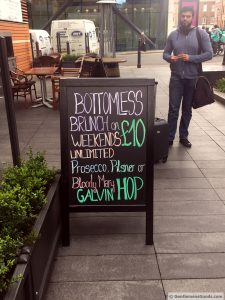 BOTTOMLESS
BRUNCH on
WEEKENDS £10
UNLIMITED
Prosecco, Pilsner or
Bloody Mary
GALVIN HOP
© GentlemensGoods.com